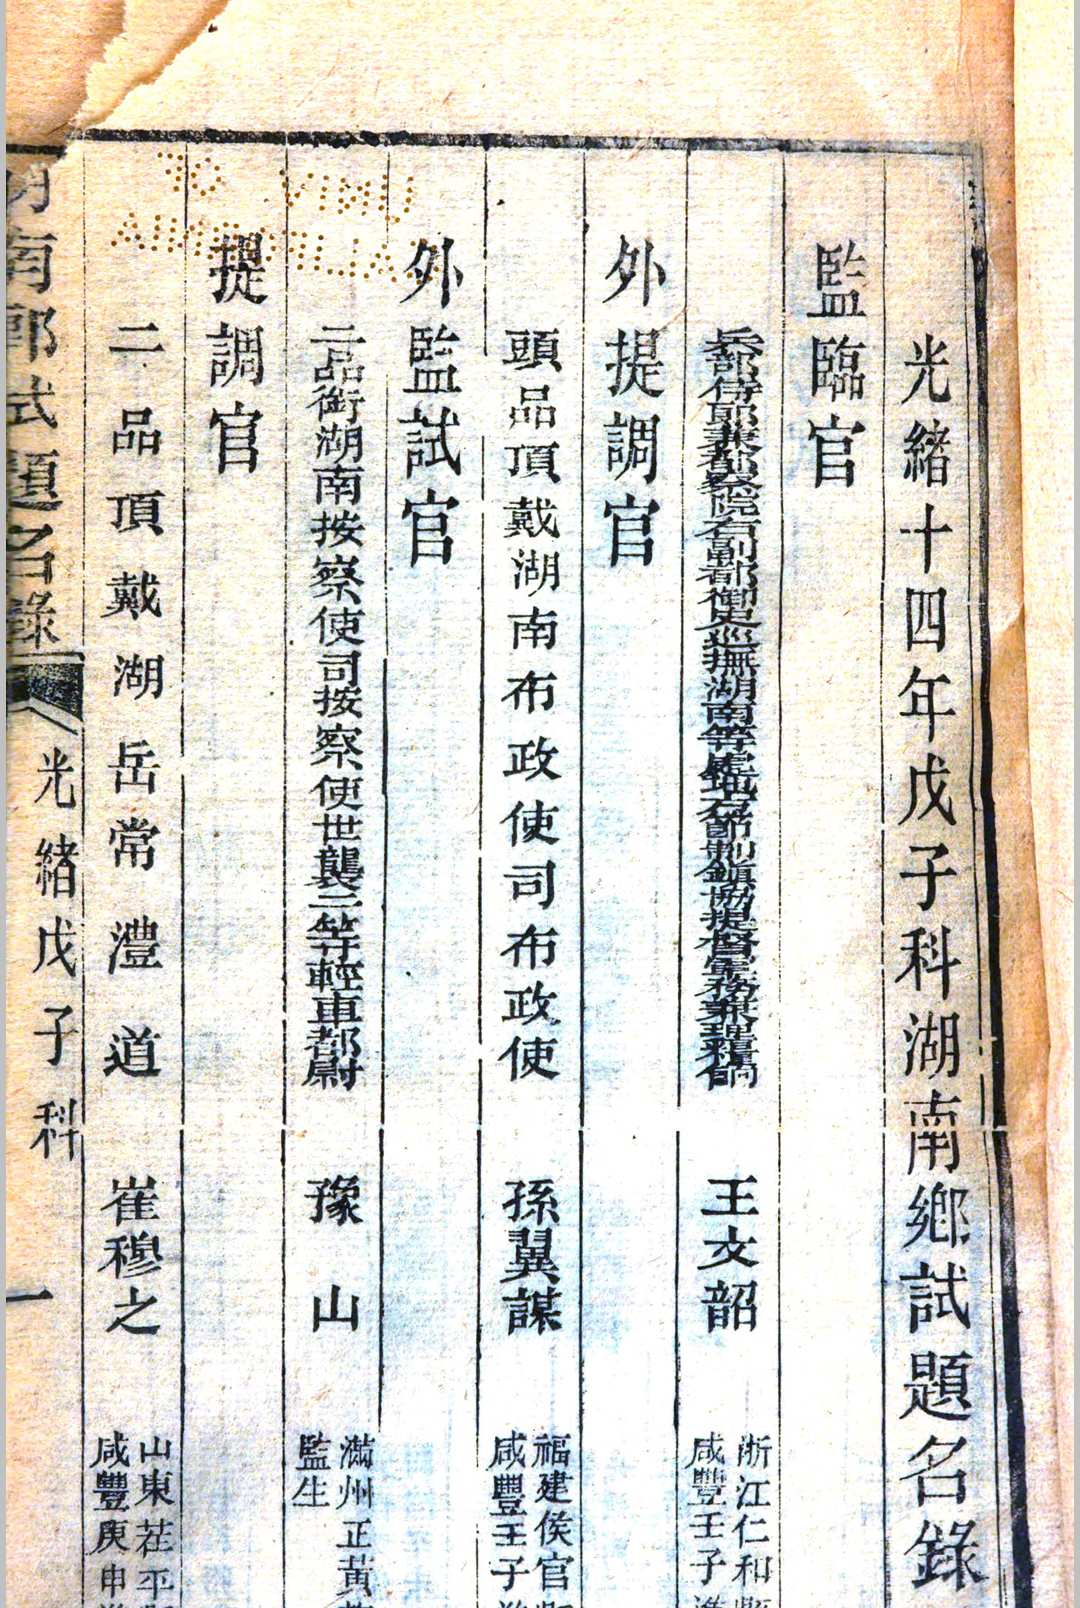 光緒十四年戊子科湖南鄉試題名錄
監臨官
兵部侍郎兼都察院右副都御史巡撫湖南等處地方節制鎮協提督軍務兼理糧餉 王文韶 浙江仁和縣
咸豐壬子進
外提調官
頭品頂戴湖南布政使司布政使 孫翼謀 福建侯官縣
咸豐壬子
外監試官
二品銜湖南按察使司按察使世襲三等輕車都尉 豫山 滿州正黃
監生
提調官
二品頂戴湖岳常澧道 崔穆之 山東茌平
咸豐庚申
南鄉試題名錄 光緒戊子科 一
UNIV OF CALIFORNIA